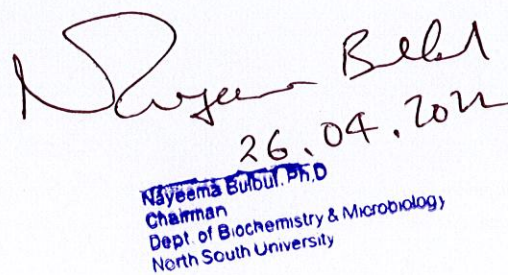 Nayeema Bulbul
26.04.2022
Nayeema Bulbul. Ph.D
Chairman
Dept. of Biochemistry & Microbiology
North South University